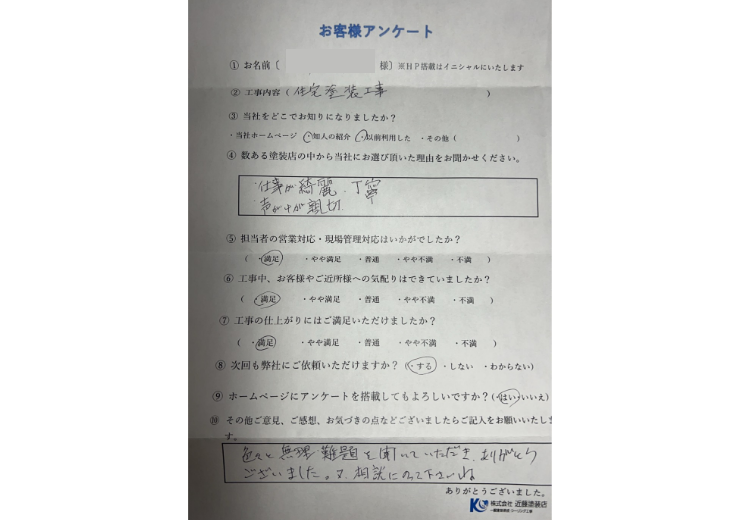 お客様アンケート
① お名前〔 様〕※HP搭載はイニシャルにいたします
② 工事内容（ 住宅塗装工事 ）
③ 当社をどこでお知りになりましたか？
・当社ホームページ ・知人の紹介 ・以前利用した ・その他（ ）
④ 数ある塗装店の中から当社にお選び頂いた理由をお聞かせください。
・仕事が綺麗、丁寧
・声がけが親切
⑤ 担当者の営業対応・現場管理対応はいかがでしたか？
（ ・満足 ・やや満足 ・普通 ・やや不満 ・不満 ）
⑥ 工事中、お客様やご近所様への気配りはできていましたか？
（ 満足 ・やや満足 ・普通 ・やや不満 ・不満 ）
⑦ 工事の仕上がりにはご満足いただけましたか？
（ ・満足 ・やや満足 ・普通 ・やや不満 ・不満 ）
⑧ 次回も弊社にご依頼いただけますか？（・する ・しない ・わからない）
⑨ ホームページにアンケートを搭載してもよろしいですか？（・はい・いいえ）
⑩ その他ご意見、ご感想、お気づきの点などございましたらご記入をお願いいたしま
す。
色々と無理難題を聞いていただき、ありがとう
ございました。又、相談にのって下さいね
ありがとうございました。
株式会社 近藤塗装店